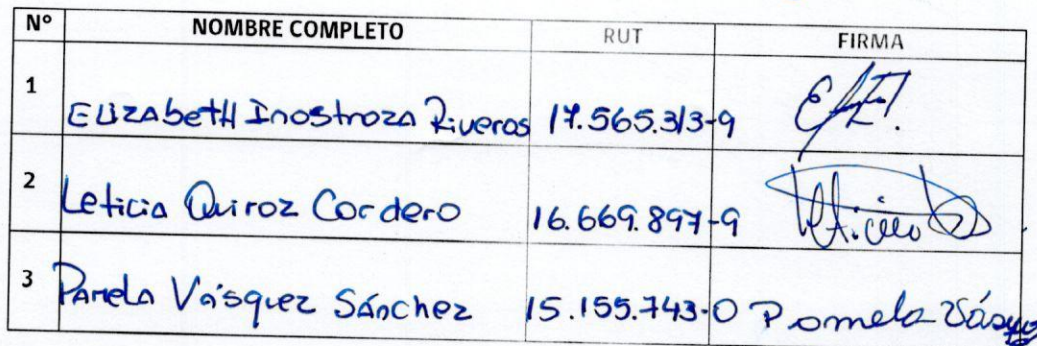 N° NOMBRE COMPLETO RUT FIRMA
1 Elizabeth Inostroza Riveros 17.565.313-9
2 Leticia Quiroz Cordero 16.669.897-9
3 Pamela Vásquez Sánchez 15.155.743-0 Pamela